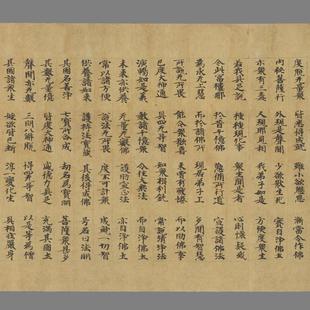 度脱无量衆 皆悉得成就 雖小欲懈怠 漸當令作佛
内秘菩薩行 外現是聲聞 少欲猒生死 實自淨佛土
示衆有三毒 又現邪見相 我弟子如是 方便度衆生
若我具足説 種種現化事 衆生聞是者 心則懷疑惑
今此富樓那 於昔千億佛 勤修所行道 宣護諸佛法
為求无上慧 而於諸佛所 現居弟子上 多聞有智慧
所説无所畏 能令衆歡喜 未曾有疲惓 而以助佛事
已度大神通 具四无㝵智 知衆根利鈍 常説清淨法
演暢如是義 教諸千億衆 令住大乘法 而自淨佛土
未來亦供養 无量无數佛 護助宣正法 亦自淨佛土
常以諸方便 説法无所畏 度不可計衆 成就一切智
供養諸如來 護持法寶藏 其後得成佛 号名曰法明
其國名善淨 七寶所合成 劫名為寶明 菩薩衆甚多
其數无量億 皆度大神通 威德力具足 充滿其國土
聲聞亦无數 三明八解脱 得四无㝵智 以是等為僧
其國諸衆生 婬欲皆已斷 淳一變化生 具相莊嚴身